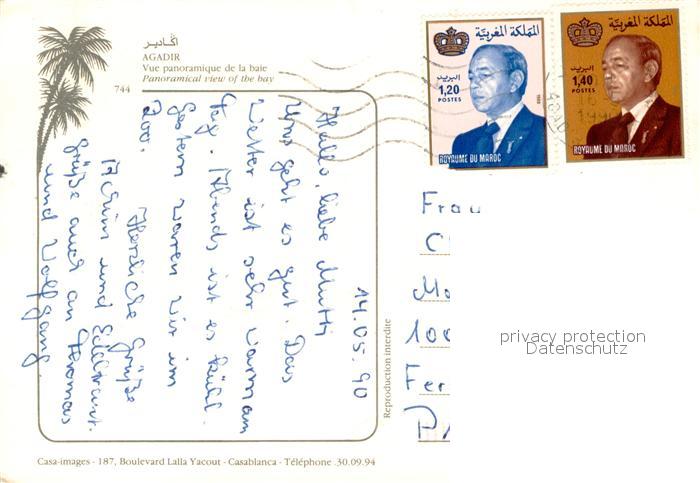 أكادير
AGADIR
Vue panoramique de la baie
Panoramical view of the bay
744
المملكة المغربية
البريد
1,20
POSTES
1988
ROYAUME DU MAROC
المملكة المغربية
البريد
1,40
POSTES
ROYAUME DU MAROC
14.05.90
Hallo, liebe Mutti
Uns geht es gut. Das
Wetter ist sehr warm am
Tag. Abends ist es kühl.
Gestern waren wir im
Zoo.
Herzliche Grüße
Achim und
Grüße auch an Thomas
und Wolfgang.
Frau
C
Mo
100
Fer
Reproduction interdite
privacy protection
Datenschutz
Casa-images - 187, Boulevard Lalla Yacout - Casablanca - Téléphone .30.09.94